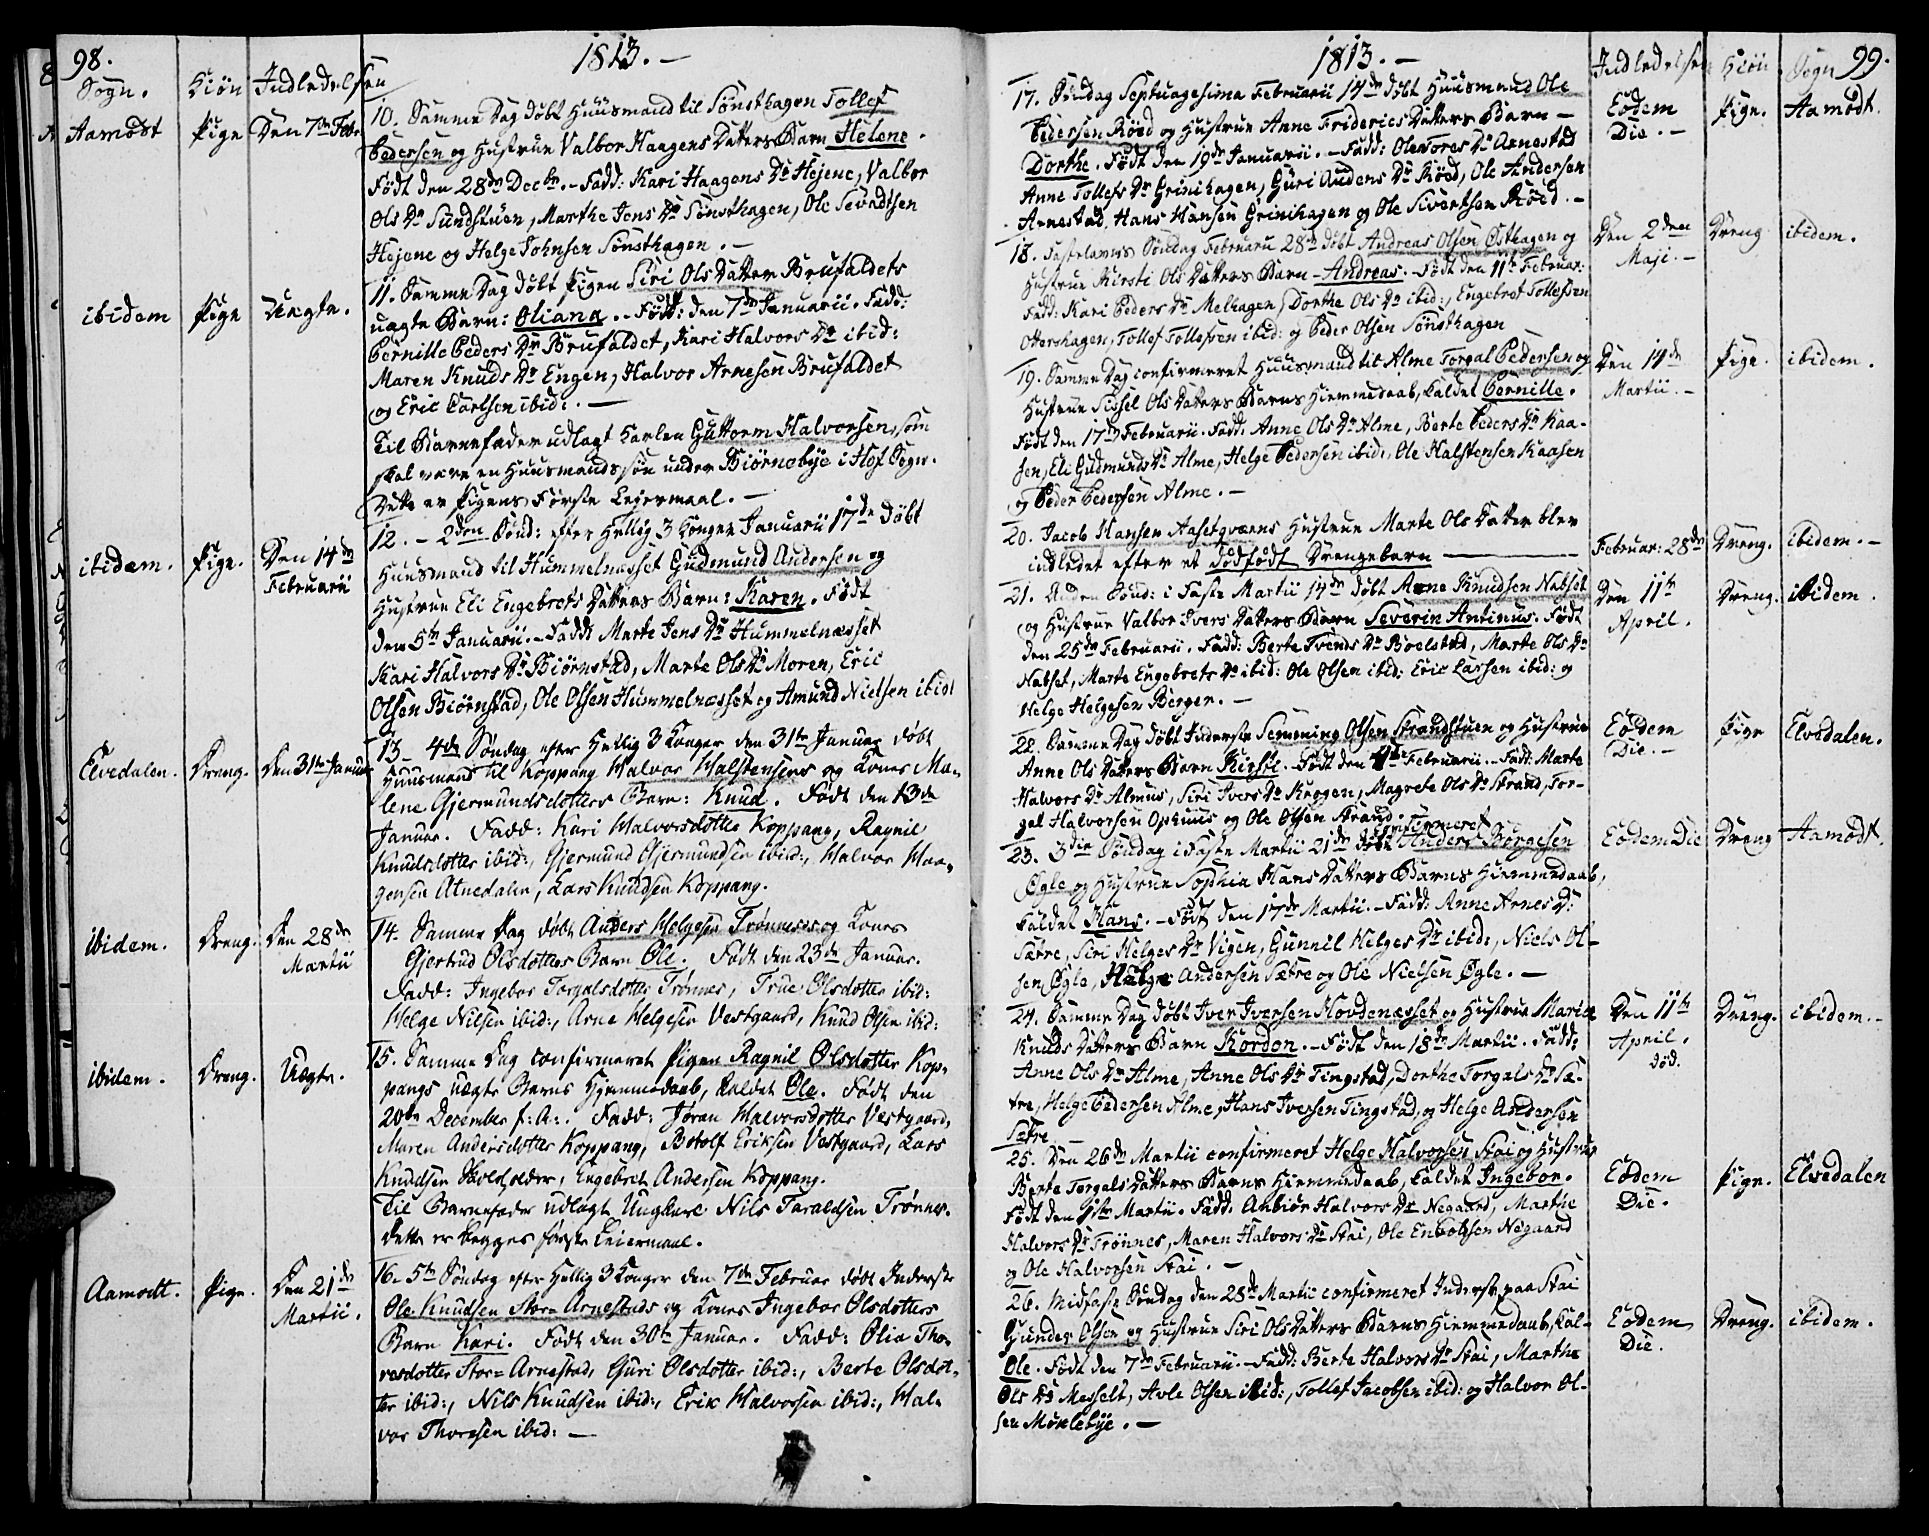 98.
1813. —
Sogn.
Kiön
Indledelsen
Aamodt
Pige
Den 7de Febr
10. Samme Dag döbt Huusmand til Sönsthagen Tollef
Pedersen og Hustrue Valbor Haagens Datters Barn Helene.
Födt den 28de Decbr. - Fadd: Kari Haagens Dr Hejene, Valbor
Ols Dr Sundstuen, Marthe Jens Dr Sönsthagen, Ole
Hejene og Helge Johnsen Sönsthagen. —
ibidem
Pige
Uægte.
11. Samme Dag döbt Pigen Siri Ols Datter Brufaldets
uægte Barn: Oliana. - Födt: den 7de Januarii. Fadd:
Pernille Peders Dr Brufaldet, Kari Halvors Dr ibid:
Maren Knuds Dr Engen, Halvor Arnesen Brufaldet
og Eric Carlsen ibid: . —
Til Barnefader udlagt Karlen Guttorm Halvorsen, som
skal være en Huusmands sön under Biörnebye i Hof Sogn.
Dette er Pigens Förste Lejermaal. —
ibidem.
Pige.
Den 14de
Februarii
12. - 2den Sönd: efter Hellig 3 Konger Januarii 17de döbt
Huusmand til Hummelnæsset Gudmund Andersen og
Hustrue Eli Engebrets Datters Barn: Karen. Födt
den 5te Januarii. - Fadd: Marte Jens Dr Hummelnæsset
Kari Halvors Dr Biörnstad, Marte Ols Dr Moren, Eric
Olsen Biörnstad, Ole Olsen Hummelnæsset og Amund Nielsen ibid
Elvedalen.
Dreng.
Den 31te Januar
13 4de Söndag efter Hellig 3 Konger den 31te Januar döbt
Huusmand til Koppang Halvor Halstensens og Kones Ma-
lene Gjermundsdotters Barn: Knud. Födt den 13de
Januar. Fadd: Kari Halvorsdotter Koppang, Ragnil
Knudsdotter ibid:, Gjermund Gjermundsen ibid:, Halvor Haa-
gensen Atnedalen, Lars Knudsen Koppang.
ibidem.
Dreng.
Den 28de
Martii
14. Samme Dag döbt Anders Helgesen Trönneses og Kones
Gjertrud Olsdotters Barn Ole. Födt den 23de Januar.
Fadd: Ingebor Torgalsdotter Trönnes, True Olsdotter ibid:
Helge Nilsen ibid:, Arne Helgesen Vestgaard, Knud Olsen ibid:
ibidem.
Dreng.
Uægte.
15. Samme Dag confirmeret Pigen Ragnil Olsdotter Kop-
pangs uægte Barns Hjemmedaab, kaldet Ole. Födt den
20de December f: A: . Fadd: Jöran Halvorsdotter Vestgaard,
Maren Andersdotter Koppang, Botolf Eriksen Vestgaard, Lars
Knudsen Skoleholder, Engebret Andersen Koppang.
Til Barnefader udlagt Ungkarl Nils Taraldsen Trönnes.
Dette er Begges förste Leiermaal.
Aamodt.
Pige.
Den 21de
Martii.
16. 5te Söndag efter Hellig 3 Konger den 7de Februar döbt Inderste
Ole Knudsen Stor-Arnestads og Kones Ingebor Olsdotters
Barn Kari. Födt den 30te Januar. Fadd: Olia Tho-
resdotter Stor-Arnestad, Guri Olsdotter ibid:, Berte Olsdot-
ter ibid:, Nils Knudsen ibid:, Erik Halvorsen ibid:, Hal-
vor Thoresen ibid: —
1813. —
Indledelsen
Kiön
Sogn
99.
17. Söndag Septuagesima Februarii 14de döbt Huusmand Ole
Pedersen Röed og Hustrue Anne Friderics Datters Barn -
Dorthe. Födt den 19de Januarii. - Fadd: Ole Arnestad
Anne Tollefs Dr Grinihagen, Guri Audens Dr Röed, Ole Andersen
Arnestad, Hans Hansen Grinihagen og Ole Sivertsen Röed. -
Eodem
Die. -
Pige.
Aamodt.
18. Fastelavns Söndag Februarii 28de döbt Andreas Olsen Östhagen og
Hustrue Kirsti Ols Datters Barn - Andreas. - Födt den 11te Februar:
Fadd: Kari Peders Dr Melhagen, Dorthe Ols Dr ibid:, Engebret Tollefsen
Ottershagen, Tollef Tollefsen ibid: og Peder Olsen Sönsthagen
Den 2den
Maji. -
Dreng
ibidem.
19. Samme Dag confirmeret Huusmand til Alme Torgal Pedersen og
Hustrue Sissel Ols Datters Barns Hiemmedaab, kaldet Pernille.
Födt den 17de Februarii. Fadd: Anne Ols Dr Alme, Berte Peders Dr Kaa-
sen, Eli Gudmunds Dr Alme, Helge Pedersen ibid:, Ole Halstensen Kaasen
og Peder Pedersen Alme. -
Den 14de
Martii. -
Pige.
ibidem.
20. Jacob Hansen Aasetqværns Hustrue Marte Ols Datter blev
indledet efter et dödfödt Drengebarn —
Februar: 28de
Dreng.
ibidem. -
21. Anden Sönd: i Faste Martii 14de döbt Arne Knudsen Nabset
og Hustrue Valbor Ivers Datters Barn Severin Antinus. Födt
den 25de Februarii. Fadd: Berte Svends Dr Boelstad, Marte Ols Dr
Nabset, Marte Engebrets Dr ibid: Ole Olsen ibid: Eric Larsen ibid: og
Helge Helgesen Berger. -
Den 11te
April.
Dreng.
ibidem.
22. Samme Dag döbt Inderste Semming Olsen Strandstuen og Hustrue
Anne Ols Datters Barn Kirsti. - Födt den Februarii. - Fadd: Marte
Halvors Dr Almus, Siri Ivers Dr Krogen, Magrete Ols Dr Strand, Tor-
gal Halvorsen Ophuus og Ole Olsen Strand. -
Eodem
Die. -
Pige
Elvedalen.
23. 3die Söndag i Faste Martii 21de confirmeret Anders Börgesen
Ögle og Hustrue Sophia Hans Datters Barns Hiemmedaab,
kaldet Hans. - Födt den 17de Martii. - Fadd: Anne Arnes D:
Sætre, Siri Helges Dr Vigen, Gunnil Helges Dr ibid:, Niels Ol-
sen Ögle, Helge Andersen Sætre og Ole Nielsen Ögle. -
Eodem Die
Dreng
Aamodt.
24. Samme Dag döbt Iver Iversen Hovdenæsset og Hustrue Marie
Knuds Datters Barn Kordon. - Födt den 18de Martii. Fadd:
Anne Ols Dr Alme, Anne Ols Dr Tingstad, Dorthe Torgals Dr Sæ-
tre, Helge Pedersen Alme, Hans Iversen Tingstad, og Helge Andersen
Sætre. -
Den 11te
April.
död.
Dreng.
ibidem. -
25. Den 26de Martii confirmeret Helge Halvorsen Stai og Hustrue
Berte Torgals Datters Barns Hiemmedaab, kaldet Ingebor.
Födt den Martii. Fadd: Anbiör Halvors Dr Negaard, Marthe
Halvors Dr Trönnes, Maren Halvors Dr Stai, Ole Negaard
og Ole Halvorsen Stai. -
Eodem
Die.
Pige.
Elvedalen
26. Midfaste Söndag den 28de Martii confirmeret Inderst paa Stai
Gunder Olsen og Hustrue Siri Ols Datters Barns Hiemmedaab, kal-
Ole. Födt den 7de Februarii. - Fadd: Berte Halvors Dr Stai, Marthe
Ols Dr Messelt, Avle Olsen ibid:, Tollef Jacobsen ibid: og Halvor Ol-
sen Möklebye. -
Eodem
Die.
Dreng.
ibidem.